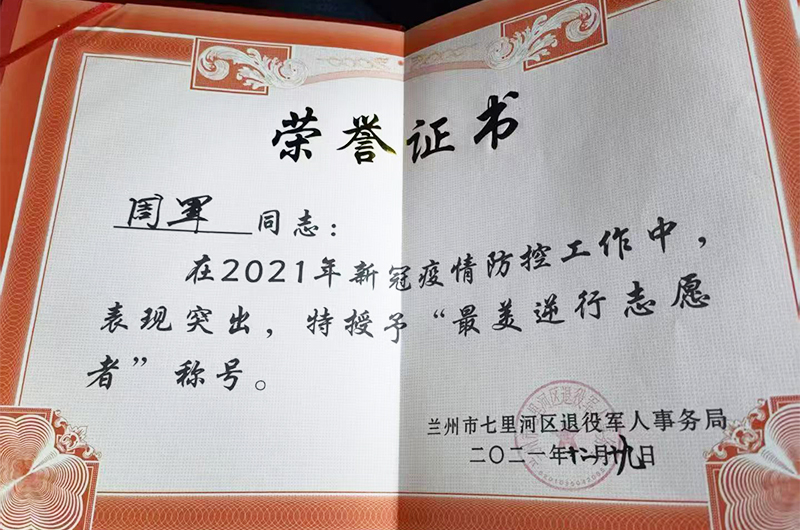 荣誉证书
周军 同志：
在2021年新冠疫情防控工作中，
表现突出，特授予“最美逆行志愿
者”称号。
兰州市七里河区退役军人事务局
二〇二一年十二月十九日